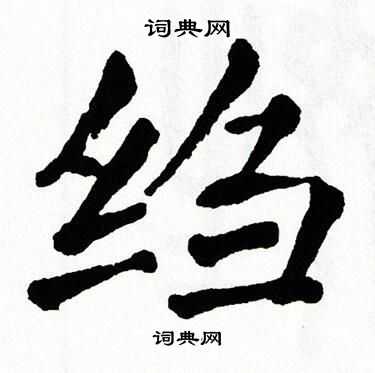 词典网
绉
词典网